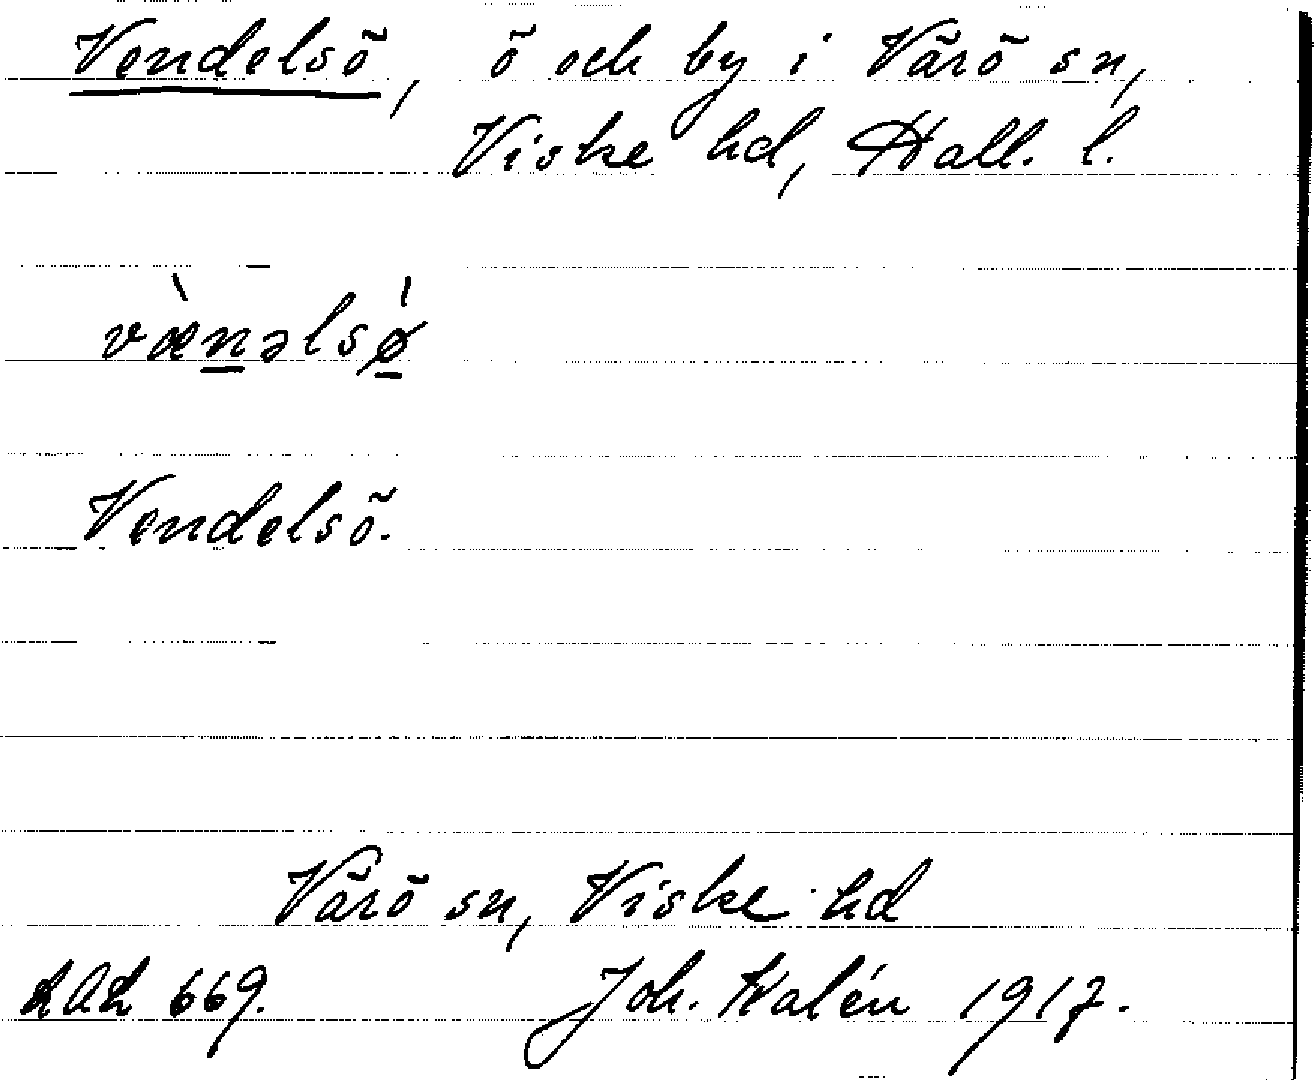 Vendelsö, ö och by i Värö sn,
Viske hd, Hall. l.
væ̀nəlsǿ
Vendelsö.
Värö sn, Viske hd
LAL 669. Joh. Kalén 1917.